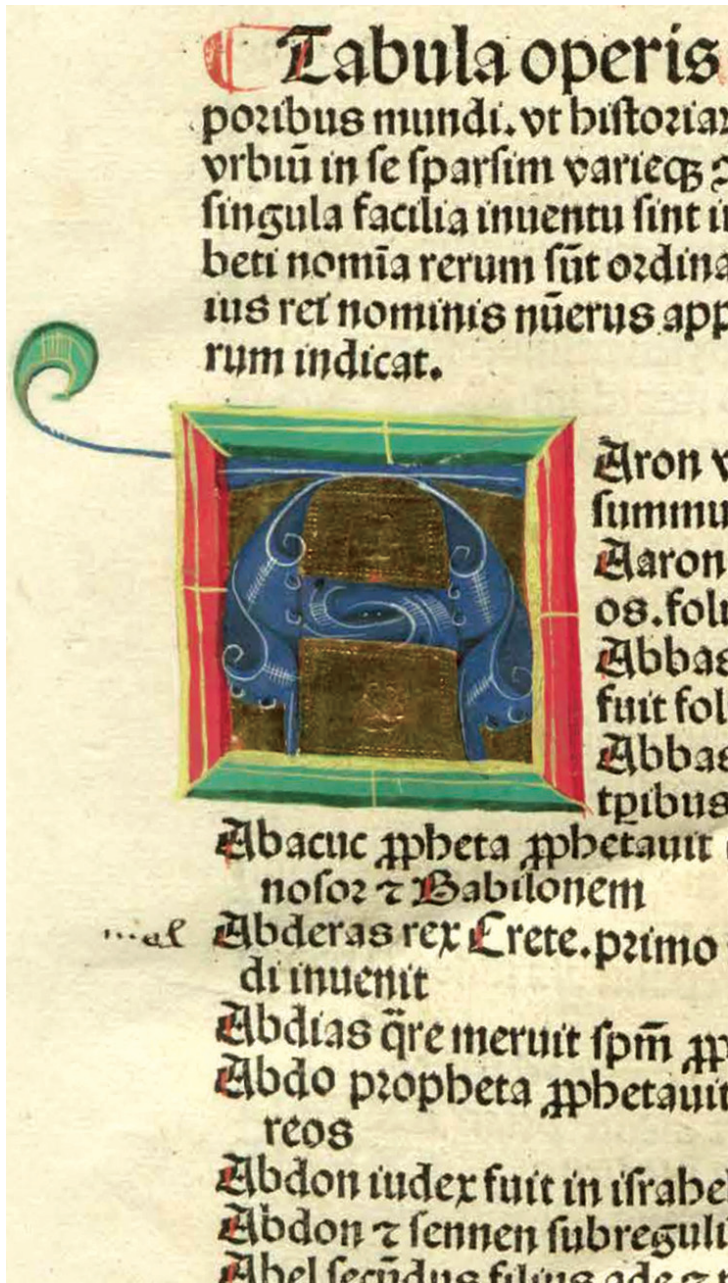 Tabula operis
poribus mundi. vt historiar
vrbiū in se sparsim varieqꝫ
singula facilia inuentu sint i
beti nomīa rerum sūt ordina
ius rei nominis nūerus app
rum indicat.
A
Aron v
summu
Aaron
os. foli
Abbas
fuit fol
Abbas
tꝑibus
Abacuc ꝓpheta ꝓphetauit
nosor ⁊ Babilonem
Abderas rex Crete. primo
di inuenit
Abdias q̄re meruit spm̄ ꝓp
Abdo propheta ꝓphetauit
reos
Abdon iudex fuit in israhel
Abdon ⁊ sennen subreguli
Abel secūdus filius ade ⁊